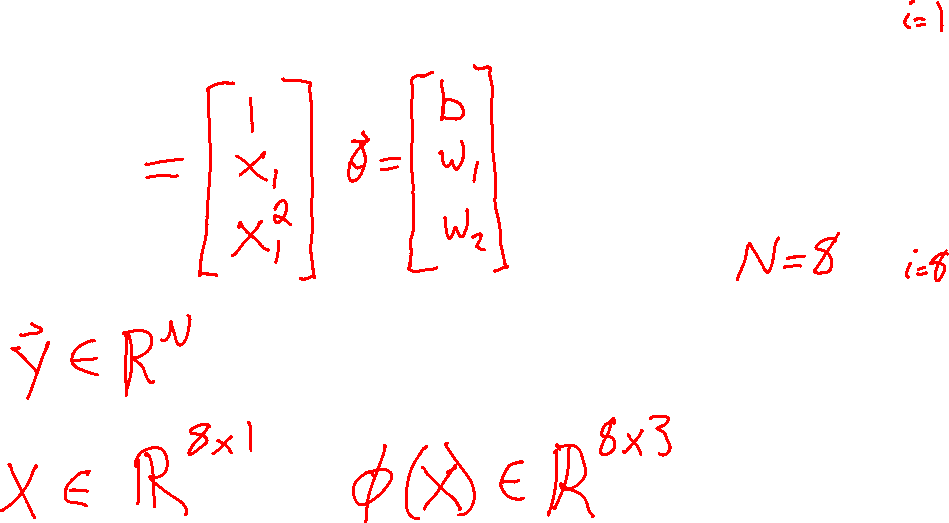 i=1
= [1 x₁ x₁²] θ⃗ = [b w₁ w₂]
N=8 i=8
y⃗ ∈ ℝᴺ
X ∈ ℝ⁸ˣ¹ ϕ(X) ∈ ℝ⁸ˣ³